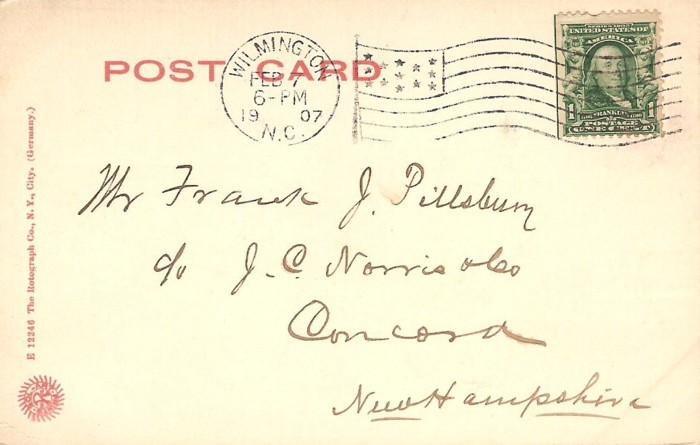 POST CARD
WILMINGTON
FEB 7
6-PM
1907
N.C.
SERIES 1902
UNITED STATES OF
AMERICA
1 FRANKLIN 1
POSTAGE
ONE CENT
Mr Frank J. Pillsbury
c/o J. C. Norris & Co
Concord
New Hampshire
E 12246 The Rotograph Co., N. Y., City. (Germany.)